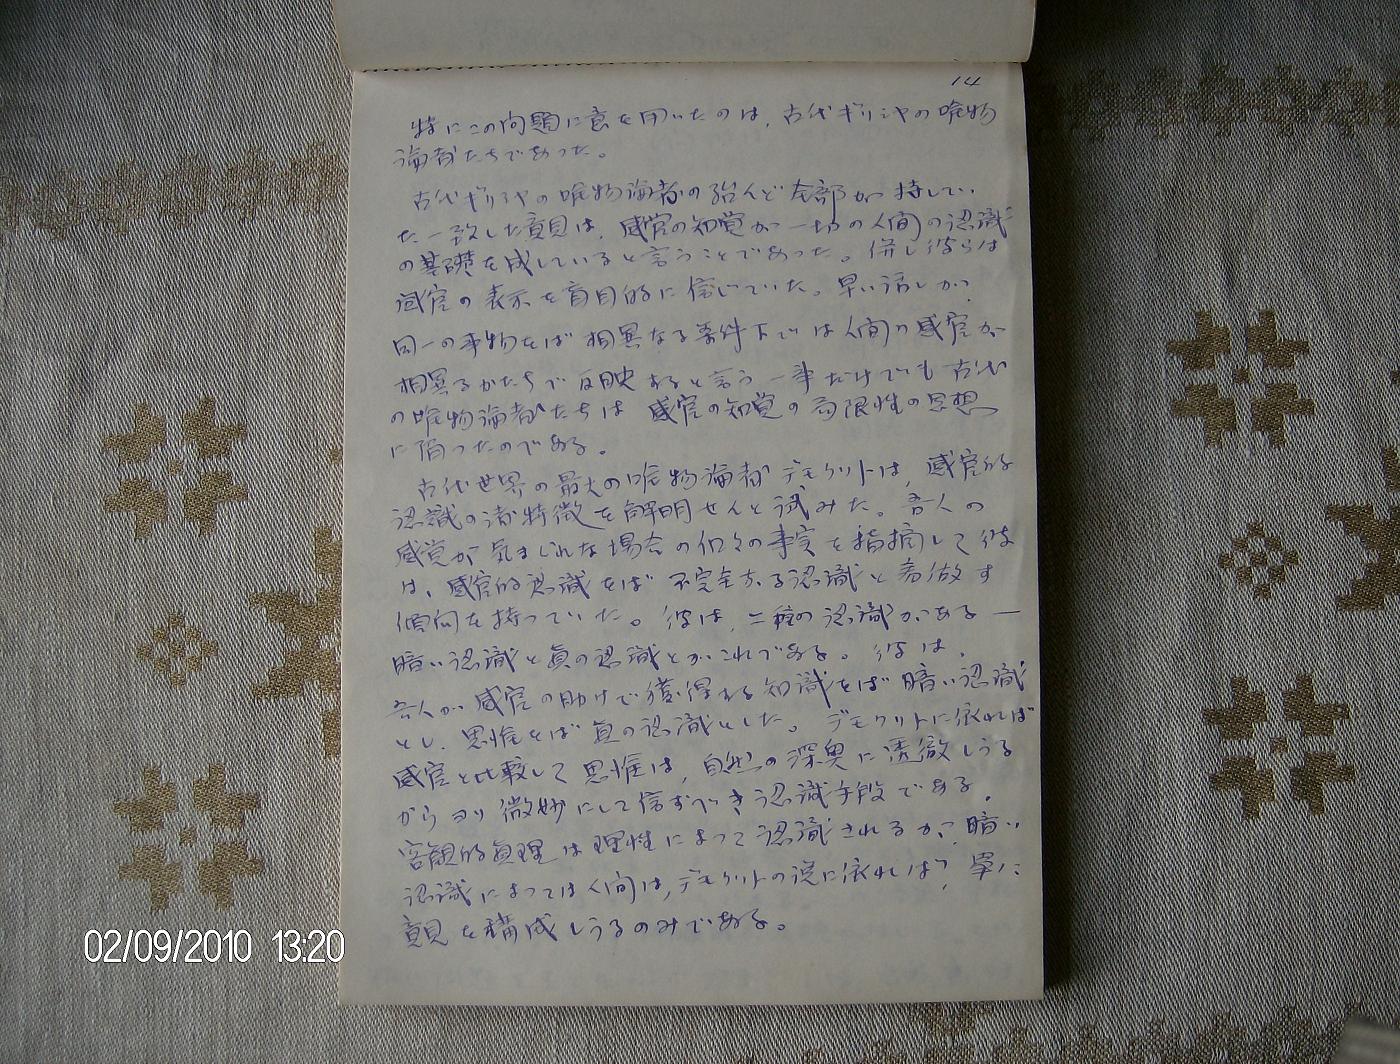 14
特にこの問題に意を用いたのは、古代ギリシヤの唯物
論者たちであった。
古代ギリシヤの唯物論者の殆んど全部が持してい
た一致した意見は、感官の知覚が一切の人間の認識
の基礎を成していると言うことであった。併し彼らは
感官の表示を盲目的に信じていた。早い話しが、
同一の事物をば相異なる条件下では人間の感官が
相異るかたちで反映すると言う一事だけでも古代
の唯物論者たちは感官の知覚の有限性の思想
に陥ったのである。
古代世界の最大の唯物論者デモクリトは、感官的
認識の諸特徴を解明せんと試みた。吾人の
感覚が気まぐれな場合の個々の事実を指摘して彼
は、感官的認識をば不完全なる認識と看做す
傾向を持っていた。彼は、二種の認識がある—
暗い認識と真の認識とがこれである。彼は、
吾人が感官の助けで獲得する知識をば暗い認識
とし、思惟をば真の認識とした。デモクリトに依れば
感官と比較して思惟は、自然の深奥に透徹しうる
からヨリ微妙にして信ずべき認識手段である。
客観的真理は理性によって認識されるが、暗い
認識によっては人間は、デモクリトの説に依れば、単に
意見を構成しうるのみである。
02/09/2010 13:20